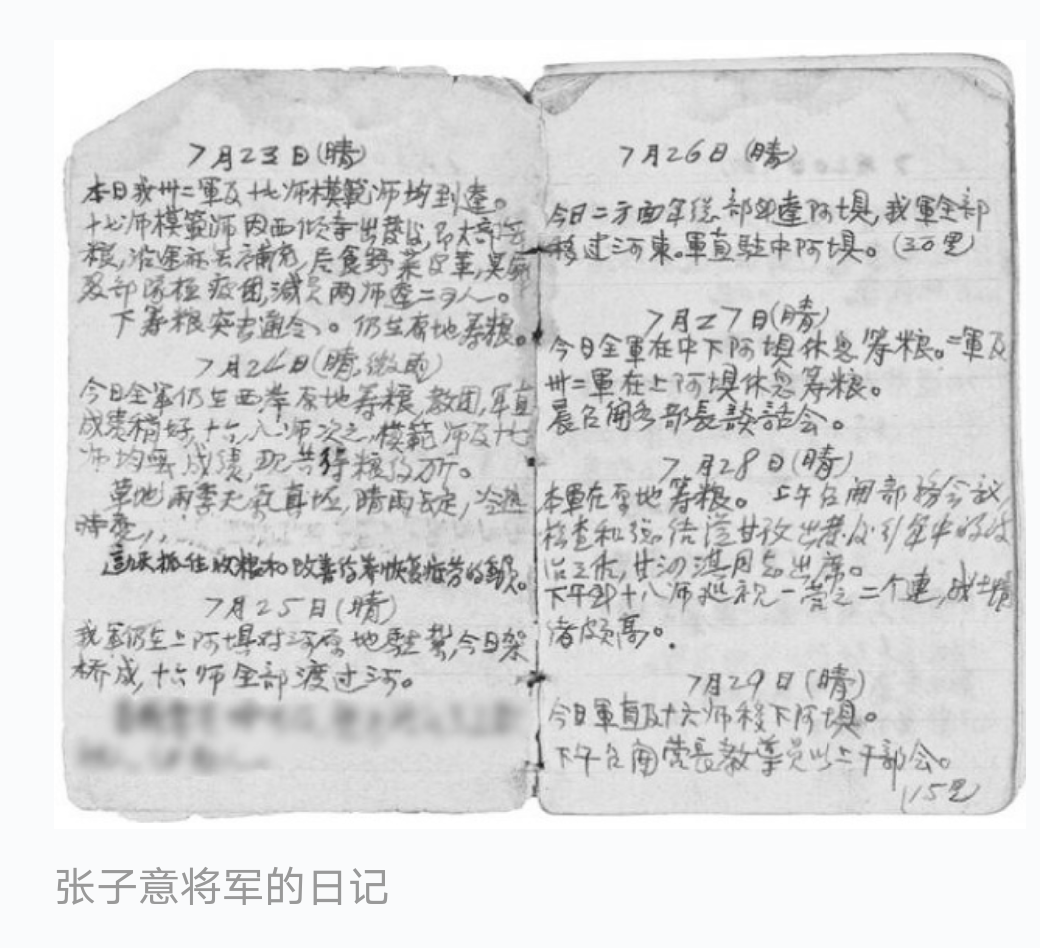 7月23日(晴)
本日我卅二軍及十七师模範师均到達。
十七师模範师因西倾寺出發後,即大部無
粮,沿途无法補充,后食野菜皮革,臭
及部隊極疲困,减员两师達二百人。
下筹粮突击通令。仍在原地筹粮。
7月24日(晴,微雨)
今日全军仍在西岸原地筹粮,教团,軍直
成绩稍好,十六,八师次之,模範师及十七
师均無成绩,现共得粮约万斤。
草地雨季天气真坏,晴雨无定,冷热
時变,
這
7月25日(晴)
我军仍在上阿壩对河原地駐紮,今日架
桥成,十六师全部渡过河。
7月26日(晴)
今日二方面军总部即達阿壩,我軍全部
移过河東。軍直駐中阿壩。(30里)
7月27日(晴)
今日全軍在中下阿壩休息筹粮。二軍及
卅二軍在上阿壩休息筹粮。
晨召開各部長談話会。
7月28日(晴)
本軍在原地筹粮。上午召開部務会议,
检查和总结從甘孜出發后行军中的政
治工作,甘泗淇同志出席。
下午到十八师巡視一营之二个連,战士情
绪頗高。
7月29日(晴)
今日軍直及十六师移下阿壩。
下午召開营長教導員以上干部会。
(15里)
张子意将军的日记